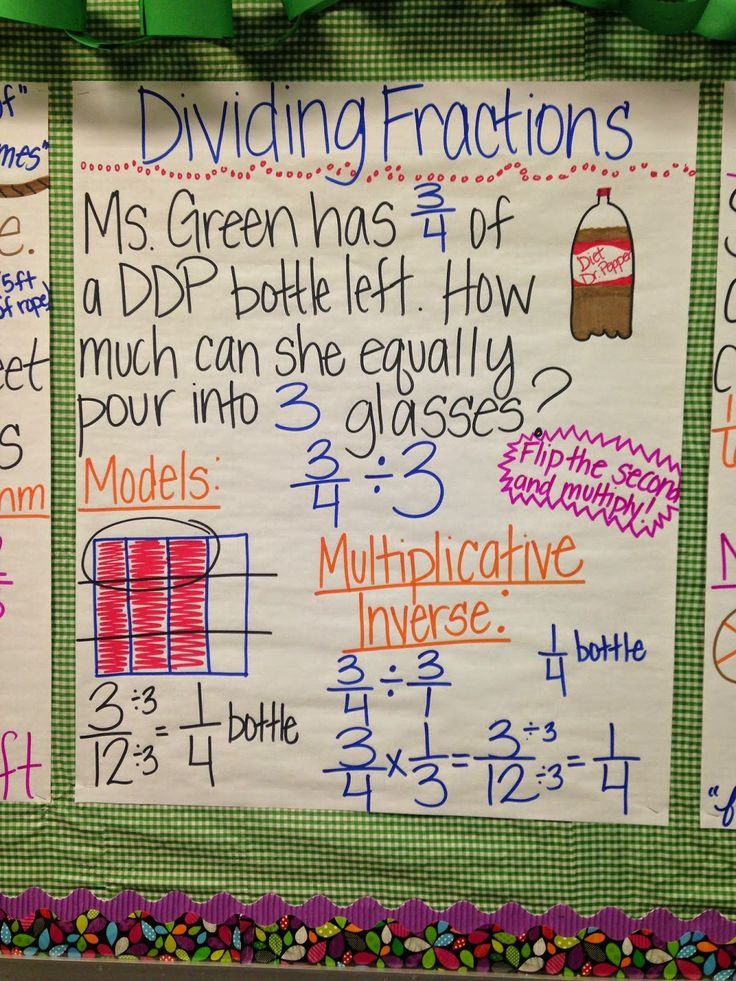 Dividing Fractions
Ms. Green has 3/4 of
a DDP bottle left. How
much can she equally
pour into 3 glasses?
Diet
Dr. Pepper
3/4 ÷ 3
Flip the second
and multiply!
Models:
3 ÷3 / 12 ÷3 = 1/4 bottle
Multiplicative
Inverse:
3/4 ÷ 3/1
1/4 bottle
3/4 x 1/3 = 3 ÷3 / 12 ÷3 = 1/4
of"
mes"
e.
5ft
of rope)
eet
s
nm
ft